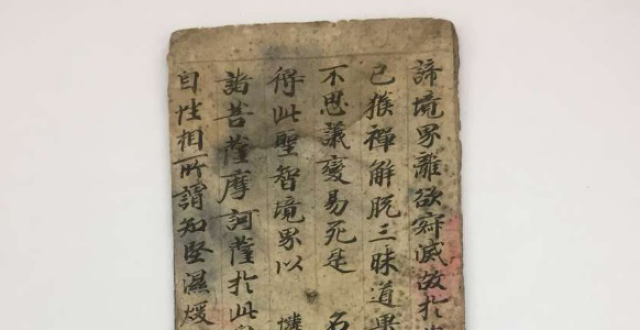 諦境界離欲寂滅故於
已獲禪解脫三昧道果
不思議變易死是 名
得此聖智境界以
諸菩薩摩訶薩於此
自性相所謂知堅濕煖